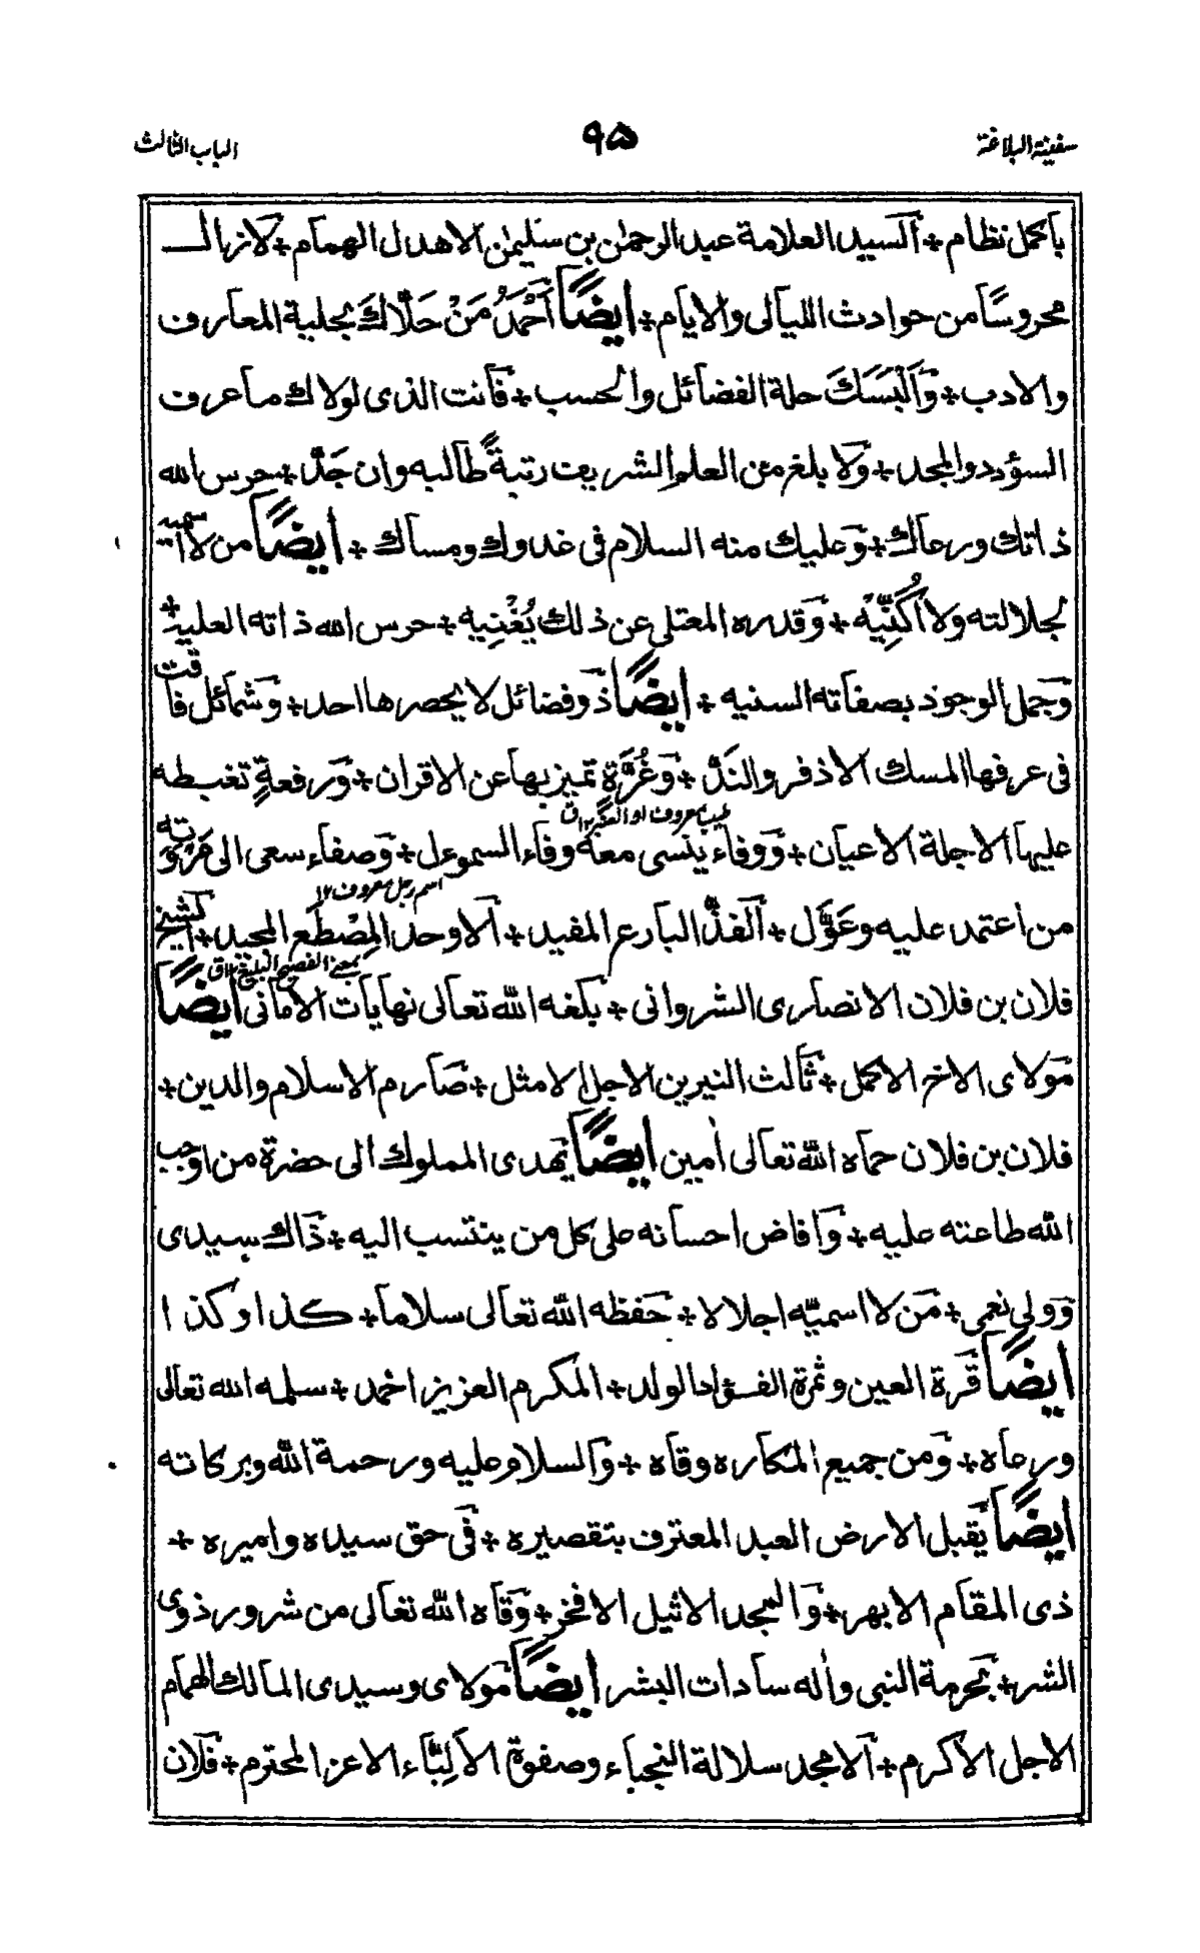 سفينة البلاغة
٩٥
الباب الثالث
باكمل نظام + السيد العلامة عبد الرحمٰن بن سليمٰن الاهدل الهمام + لا زال
محروسًا من حوادث الليالى والايام + ايضًا اَحْمَدُ مَنْ حَلَّاكَ بحلية المعارف
والادب + وَاَلْبَسَكَ حلة الفضائل والحسب + فانت الذى لولاك ما عرف
السؤدد والمجد + ولا بلغ من العلم الشريف رتبةً طالبه وان جَدَّ + حرس الله
ذاتك ورعاك + وعليك منه السلام فى غدوك ومساك + ايضًا من لا اسميه
لجلالته ولا اُكَنِّيْه + وقدره المعتلى عن ذلك يُغْنِيه + حرس الله ذاته العلية +
وجمل الوجود بصفاته السنيه + ايضًا ذو فضائل لا يحصرها احد + وشمائل فاقت
فى عرفها المسك الاذفر والنَدَّ + وغُرَّة تميز بها عن الاقران + ورفعةٍ تغبطه
طيب معروف او العنبر ١٢ ق
عليها الاجلة الاعيان + ووفاء ينسى معه وفاء السموءل + وصفاء سعى الى مروته
اسم رجل معروف ١٢
من اعتمد عليه وعَوَّل + الفذّ البارع المفيد + الاوحد المِصْطَع المجيد + الشيخ
بمعنى الفصيح البليغ ١٢ ق
فلان بن فلان الانصارى الشروانى + بلغه الله تعالى نهايات الامانى ايضًا
مولاى الاخ الاكمل + ثالث النيرين الاجل الامثل + صارم الاسلام والدين +
فلان بن فلان حماه الله تعالى اٰمين ايضًا يهدى المملوك الى حضرة من اوجب
الله طاعته عليه + وافاض احسانه على كل من ينتسب اليه + ذاك سيدى
وولى نعمى + من لا اسميّه اجلالا + حفظه الله تعالى سلاما + كذا وكذا
ايضًا قرة العين وثمرة الفؤاد الولد + المكرم العزيز احمد + سلمه الله تعالى
ورعاه + ومن جميع المكاره وقاه + والسلام عليه ورحمة الله وبركاته
ايضًا يقبل الارض العبد المعترف بتقصيره + فى حق سيده واميره +
ذى المقام الابهر + والمجد الاثيل الافخر + وقاه الله تعالى من شرور ذوى
الشر + بحرمة النبى واٰله سادات البشر ايضًا مولاى وسيدى المالك الهمام
الاجل الاكرم + الامجد سلالة النجباء وصفوة الاَلِبَّاء الاعز المحترم + فلان